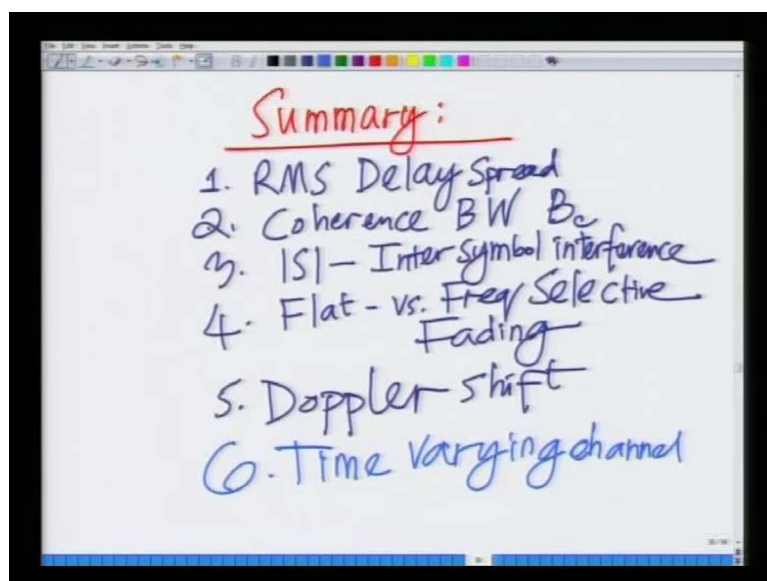 File Edit View Insert Actions Tools Help
Summary:
1. RMS Delay Spread
2. Coherence BW Bc
3. ISI - Inter Symbol interference
4. Flat - vs. Freq Selective
Fading
5. Doppler shift
6. Time varying channel